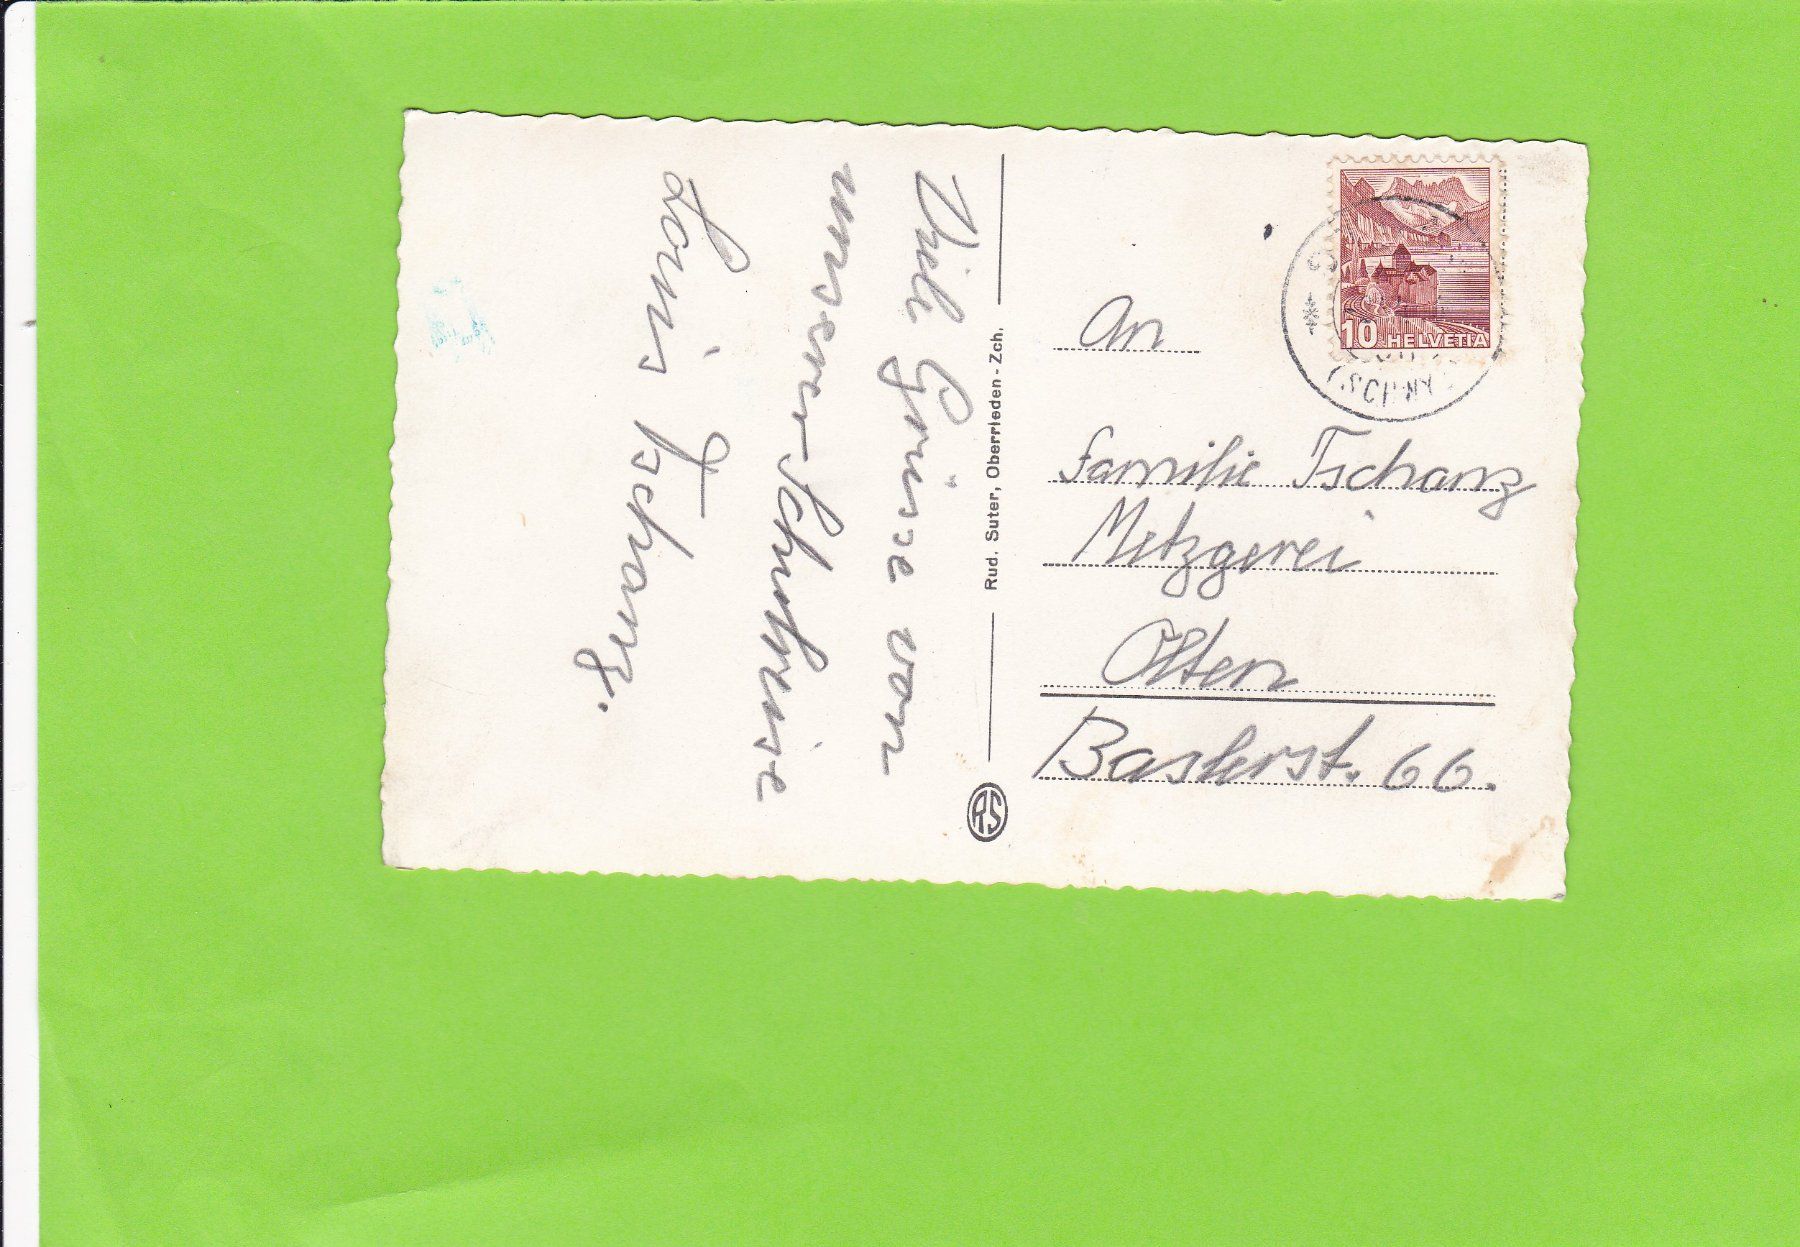 Viele Grüsse von
unserer Schulreise
Louis Tschanz.
Rud. Suter, Oberrieden - Zch.
RS
10 HELVETIA
An
Familie Tschanz
Metzgerei
Olten
Baslerst. 66.